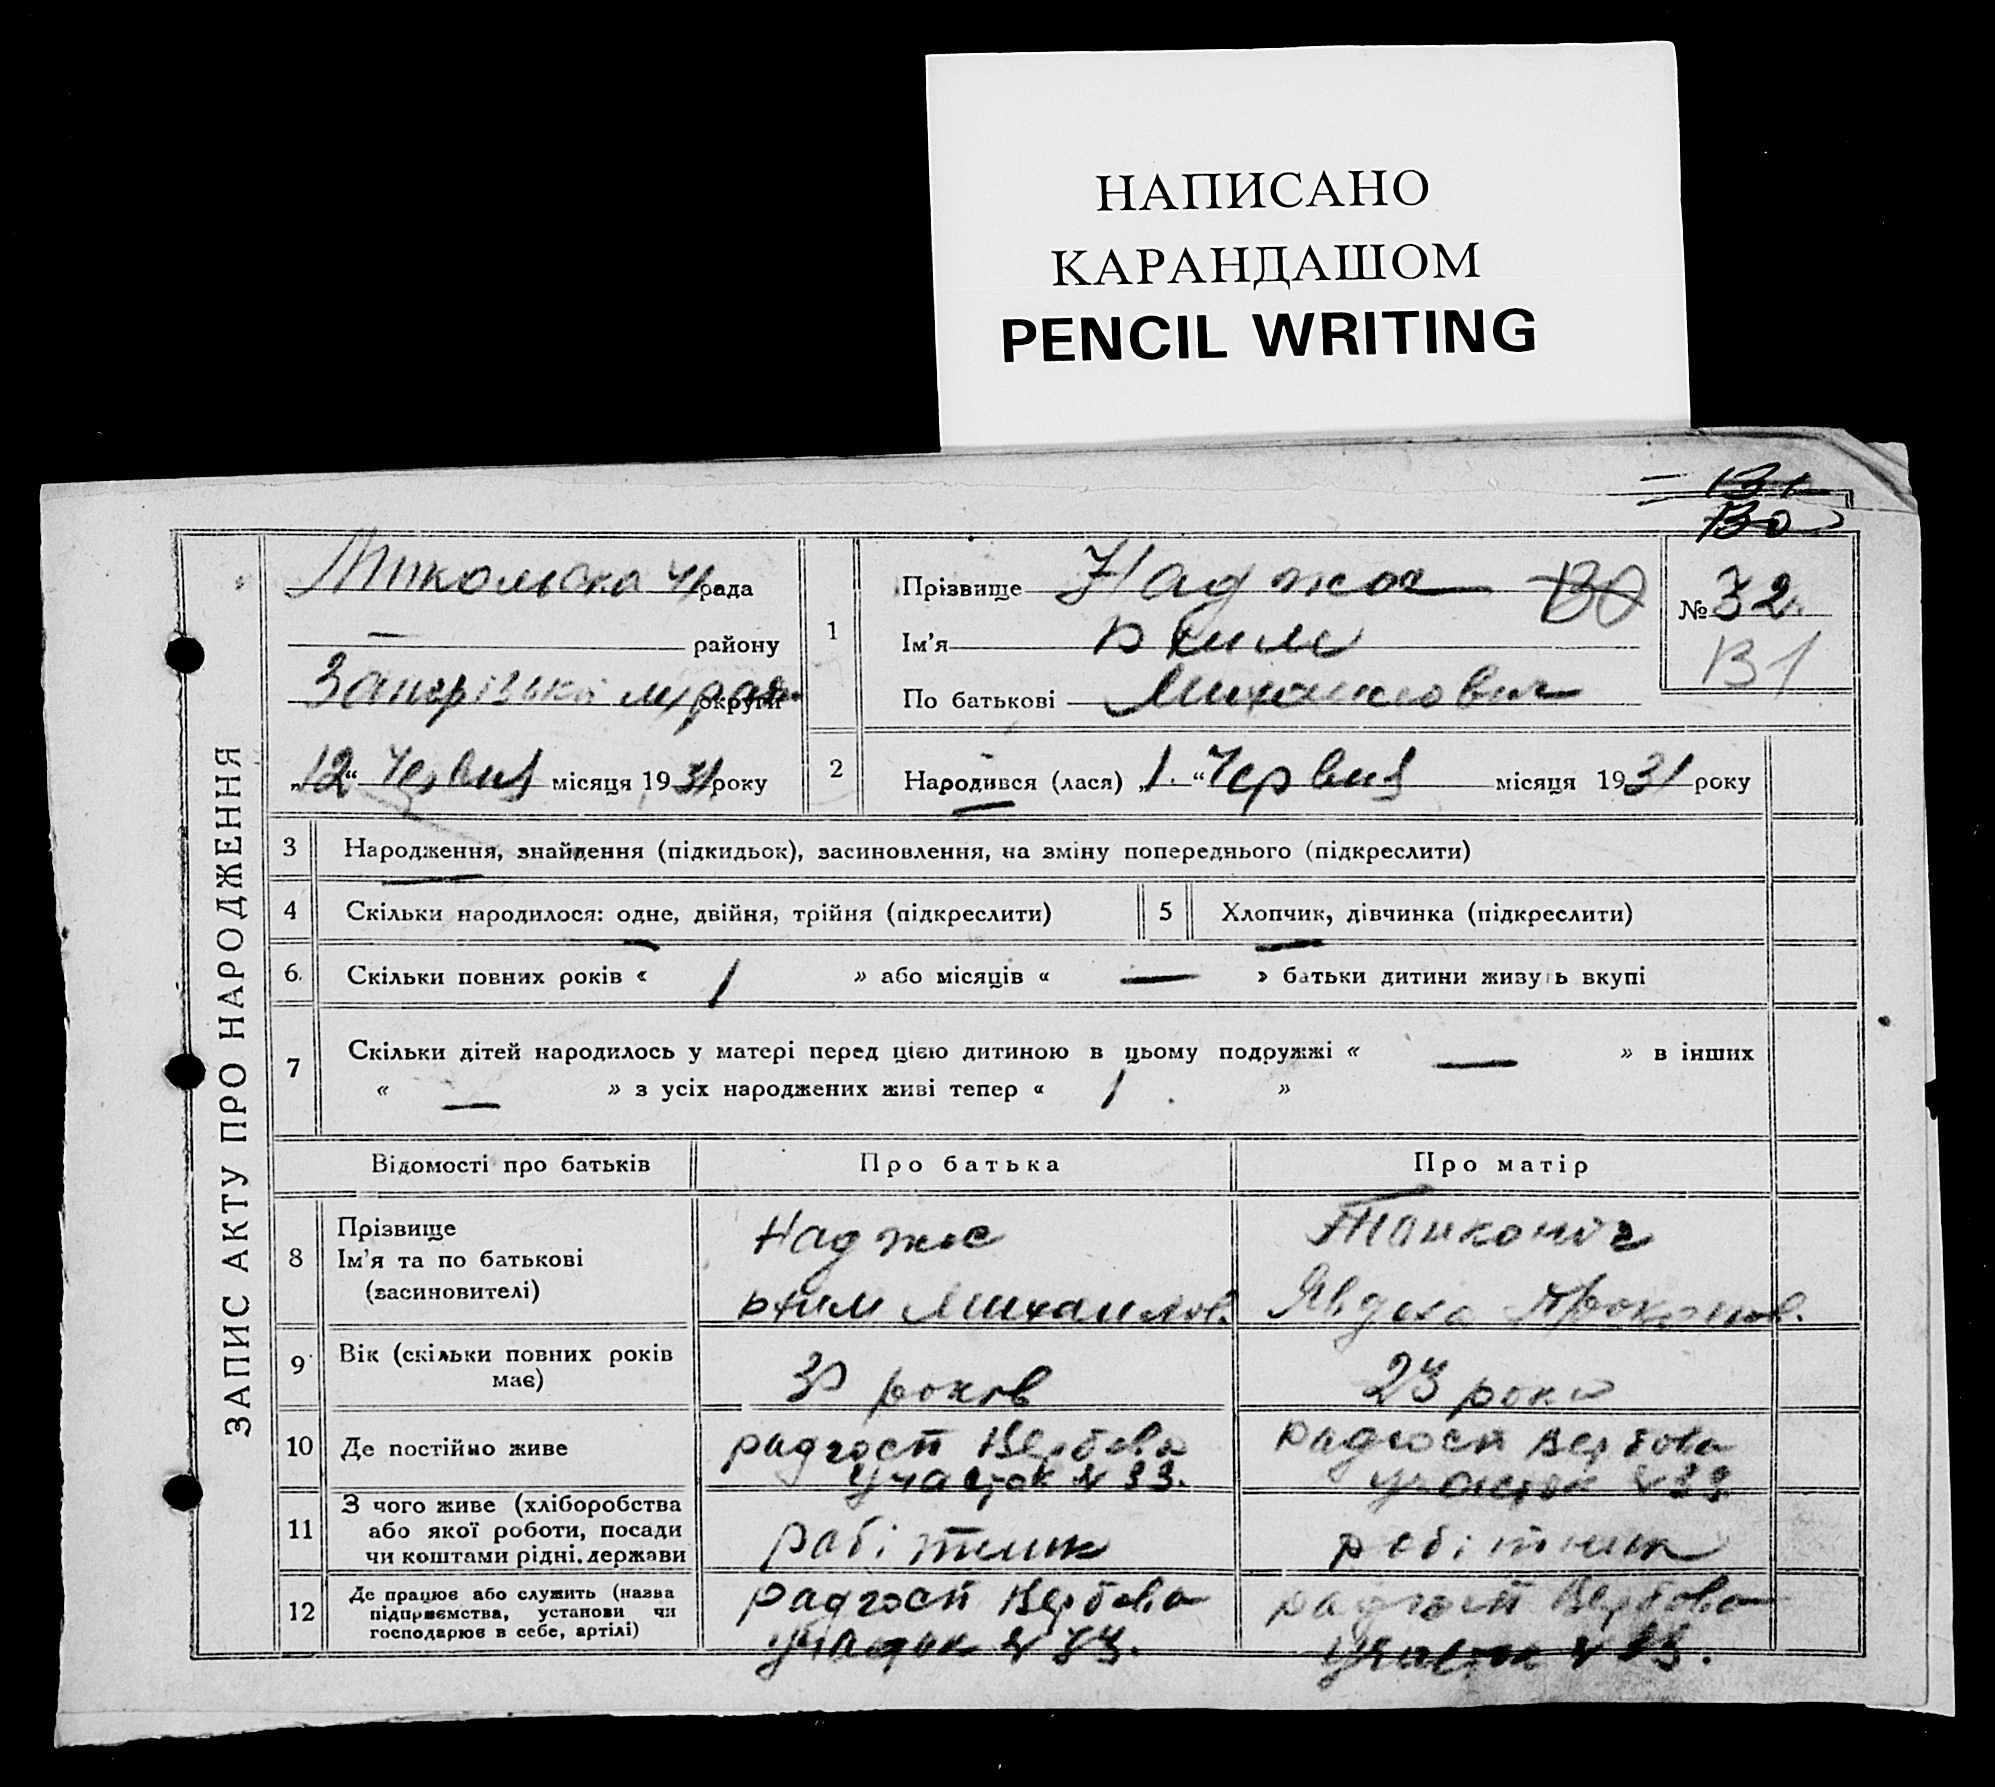 НАПИСАНО
КАРАНДАШОМ
PENCIL WRITING
В1
ВО
ЗАПИС АКТУ ПРО НАРОДЖЕННЯ
Микольска рада
— району
округи
„12“ Червня місяця 1931 року
1
Прізвище Наджос ВО
Ім'я
По батькові Михаилович
№ 32
В1
2 Народився (лася) „1.“ Червня місяця 1931 року
3 Народження, знайдення (підкидьок), засиновлення, на зміну попереднього (підкреслити)
4 Скільки народилося: одне, двійня, трійня (підкреслити) 5 Хлопчик, дівчинка (підкреслити)
6. Скільки повних років « 1 » або місяців « — » батьки дитини живуть вкупі
7 Скільки дітей народилось у матері перед цією дитиною в цьому подружжі « — » в інших
« — » з усіх народжених живі тепер « 1 »
Відомості про батьків Про батька Про матір
8 Прізвище
Ім'я та по батькові
(засиновителі)
Наджос
Михаилов.
Явдоха Прокопов.
9 Вік (скільки повних років має) 30 років 23 роки
10 Де постійно живе
радгосп Вербова
участок № 33.
радгосп Вербова
участок № 33
11 З чого живе (хліборобства
або якої роботи, посади
чи коштами рідні, держави
робітник
робітник
12 Де працює або служить (назва
підприємства, установи чи
господарює в себе, артілі)
радгосп Вербова
участок № 33.
радгосп Вербова
участок № 33.